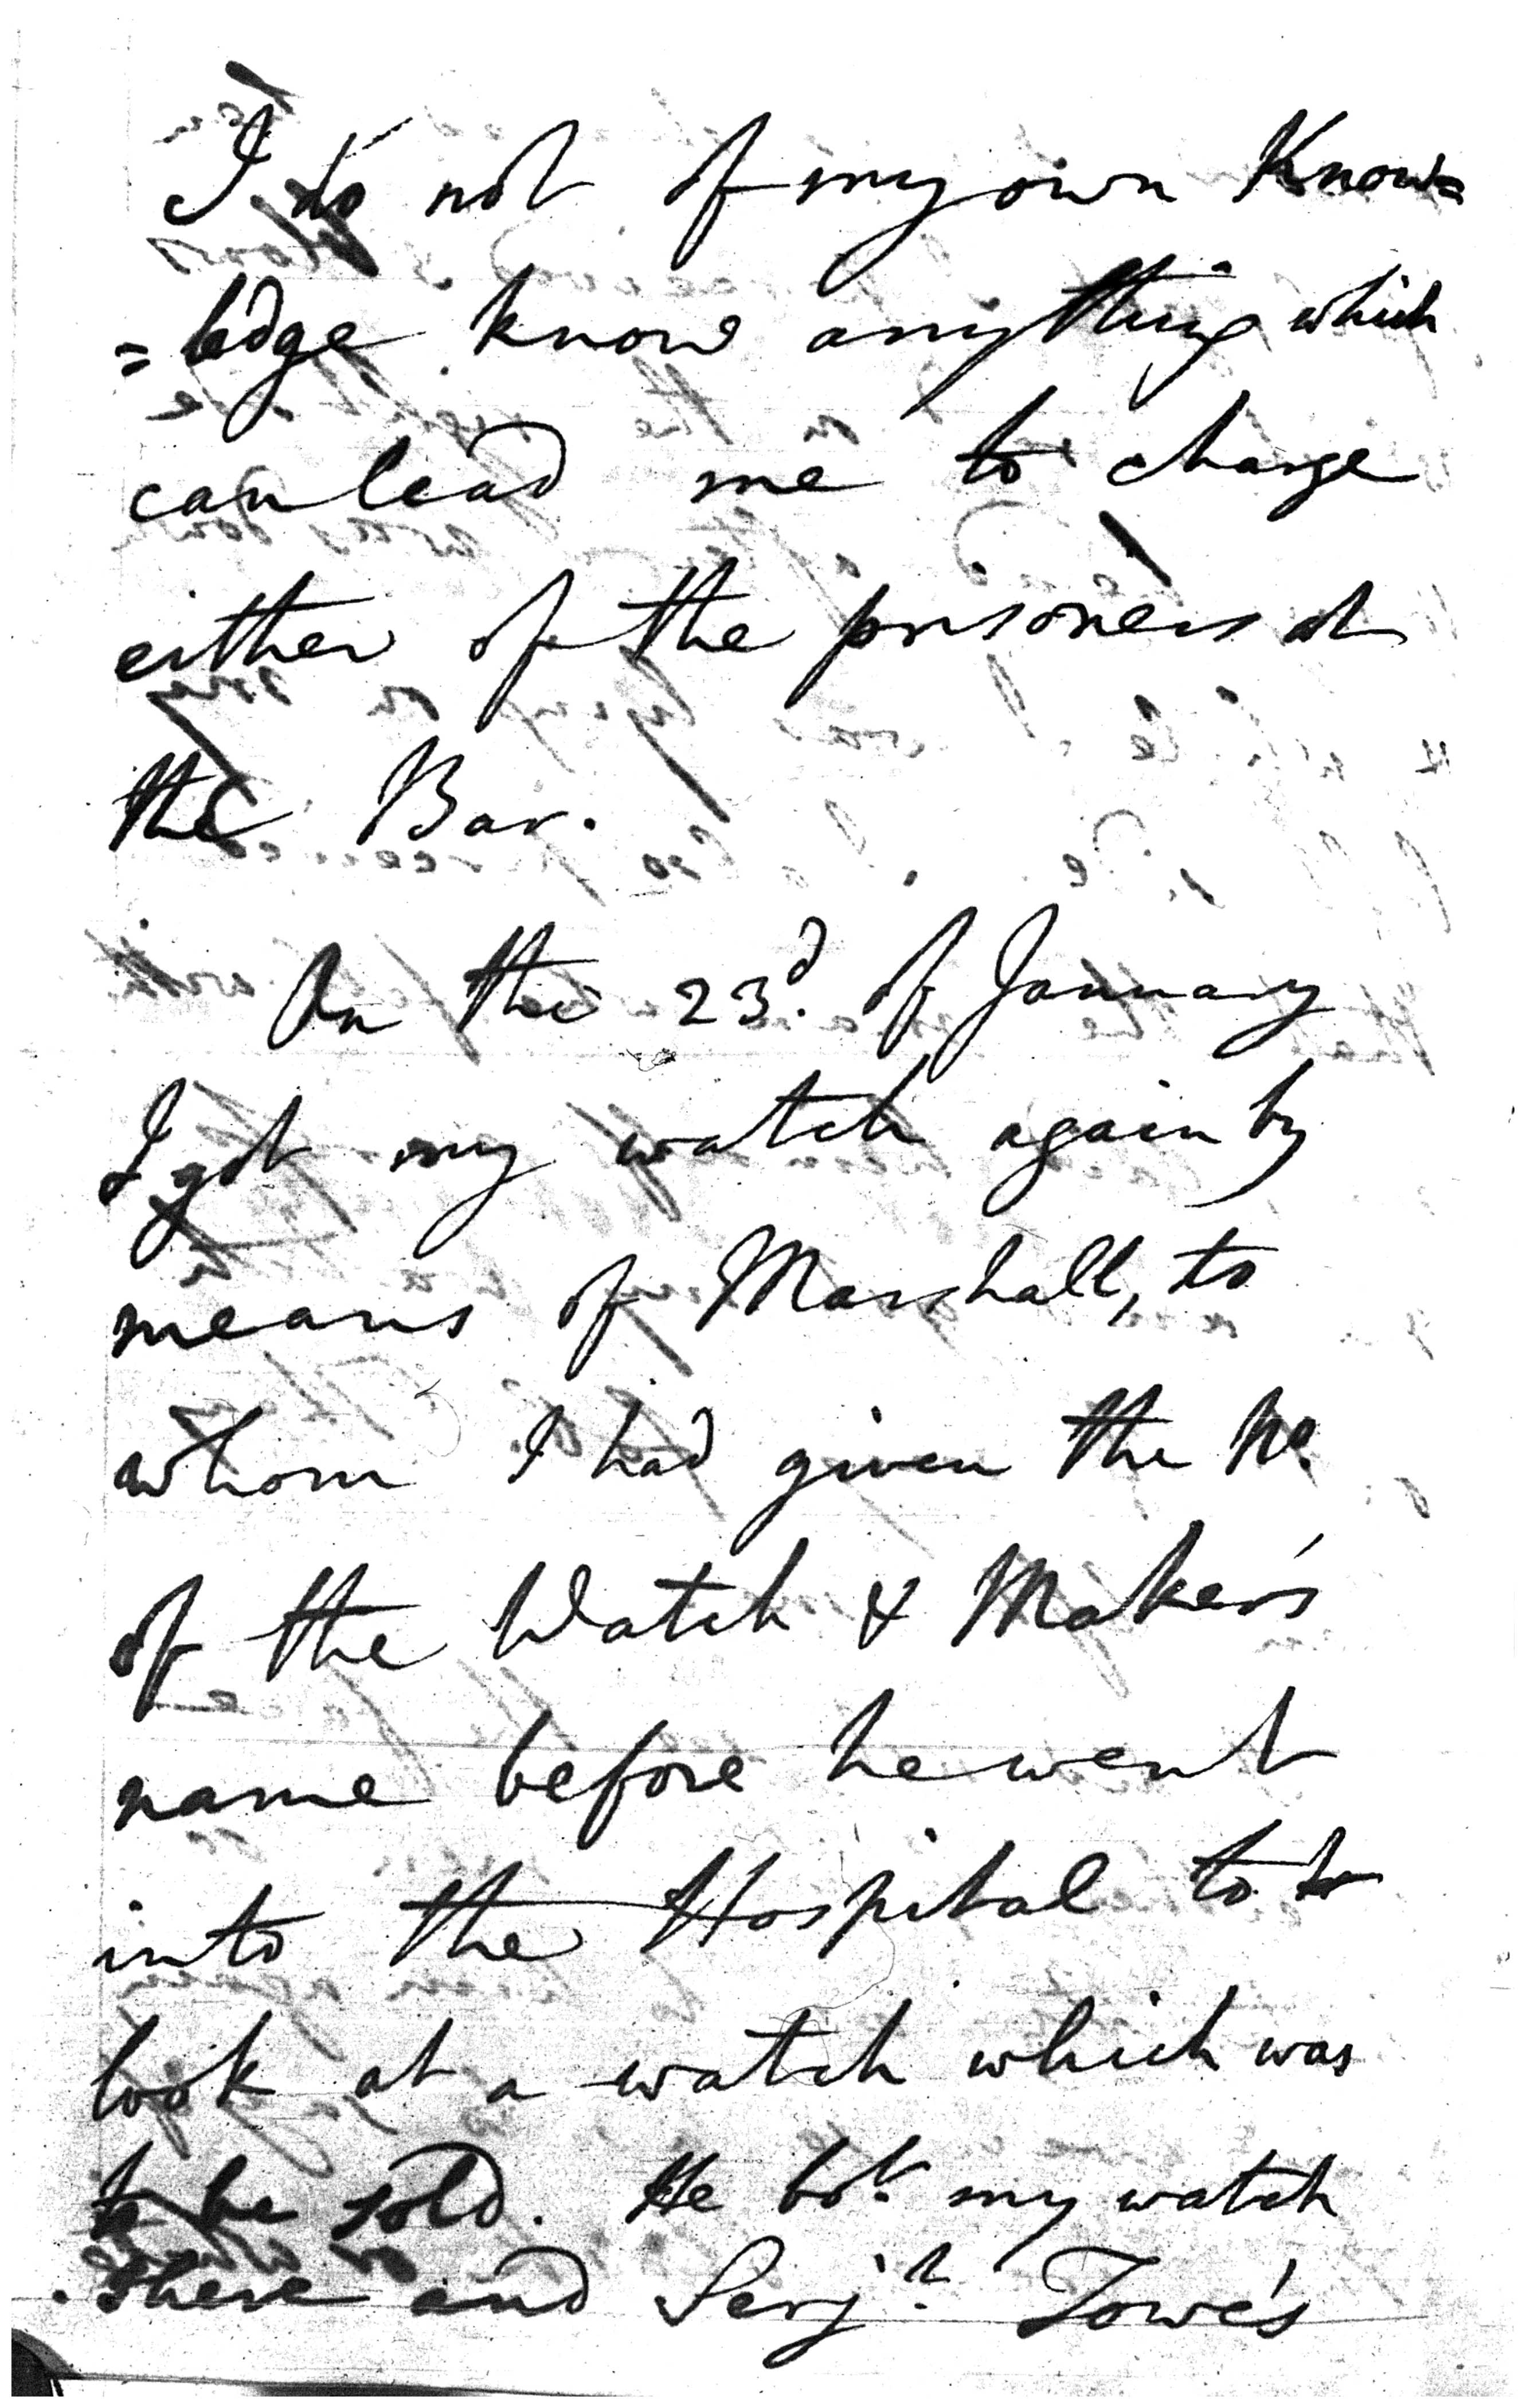 I do not of my own Know=
=ledge know anything which
can lead me to charge
either of the prisoners at
the Bar.
On the 23d. of January
I got my watch again by
means of Marshall, to
whom I had given the No.
of the Watch & Maker's
name before he went
into the Hospital to
look at a watch which was
to be sold. He bot. my watch
there and Serjt. Towe's